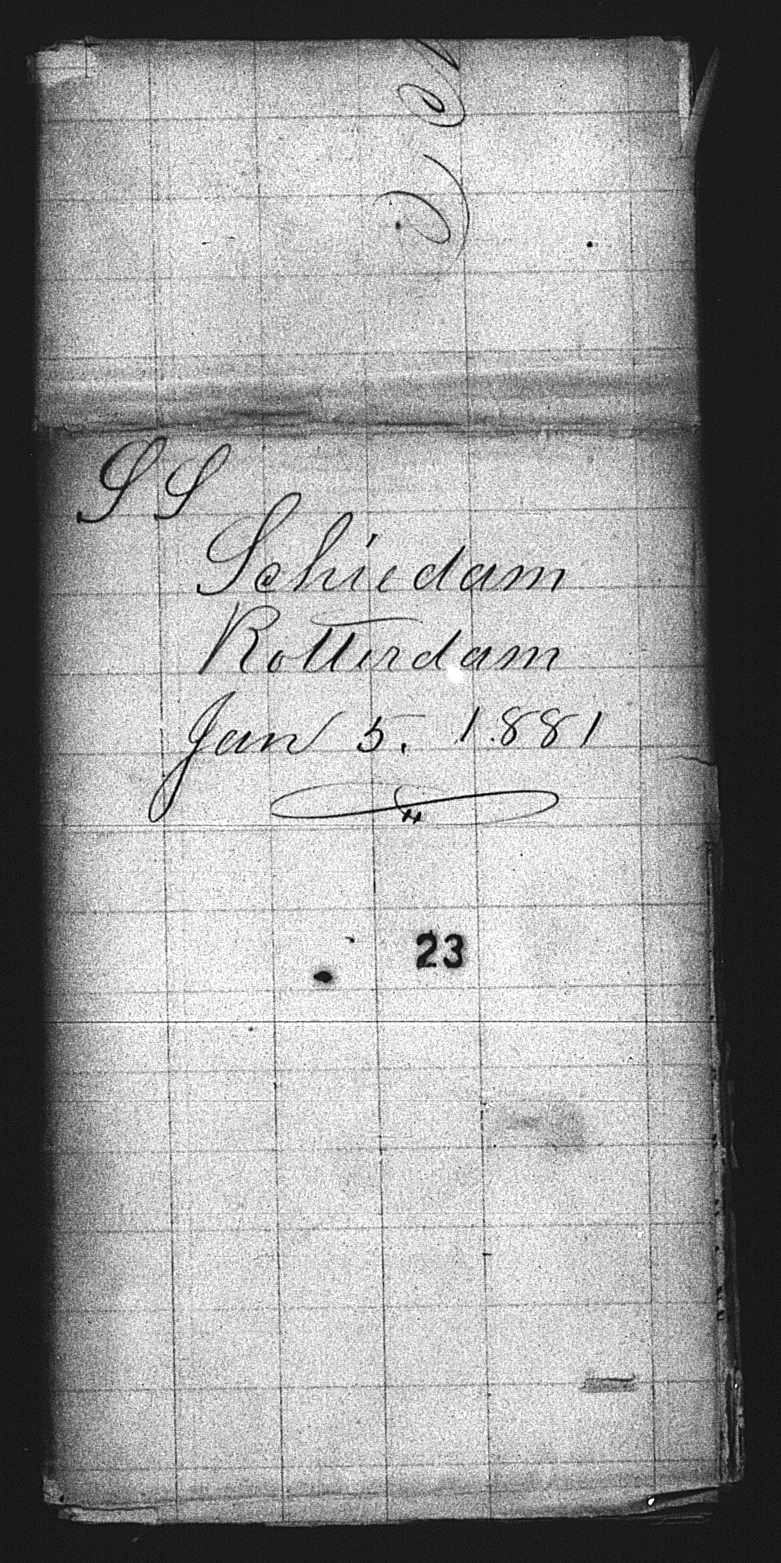 S S
Schiedam
Rotterdam
Jan 5. 1881
23